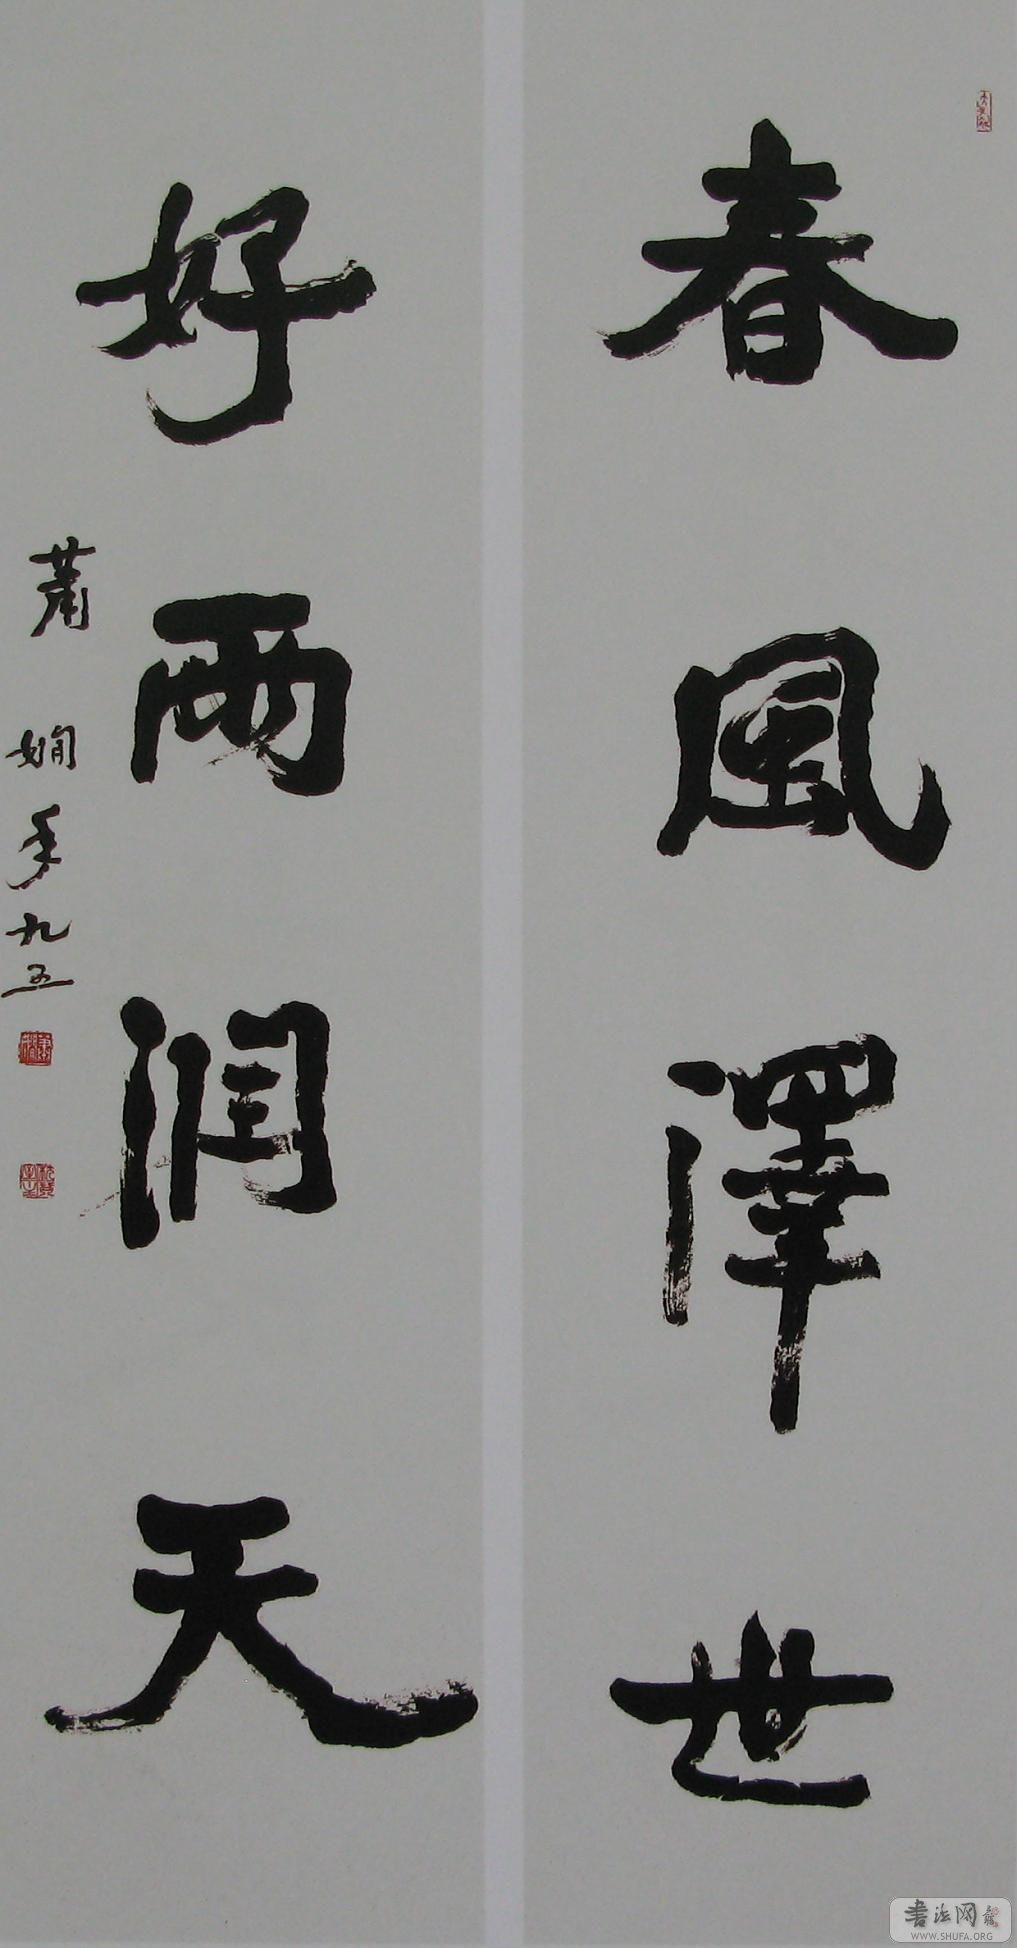 春風澤世
好雨润天
萧娴年九五
書法网
WWW.SHUFA.ORG